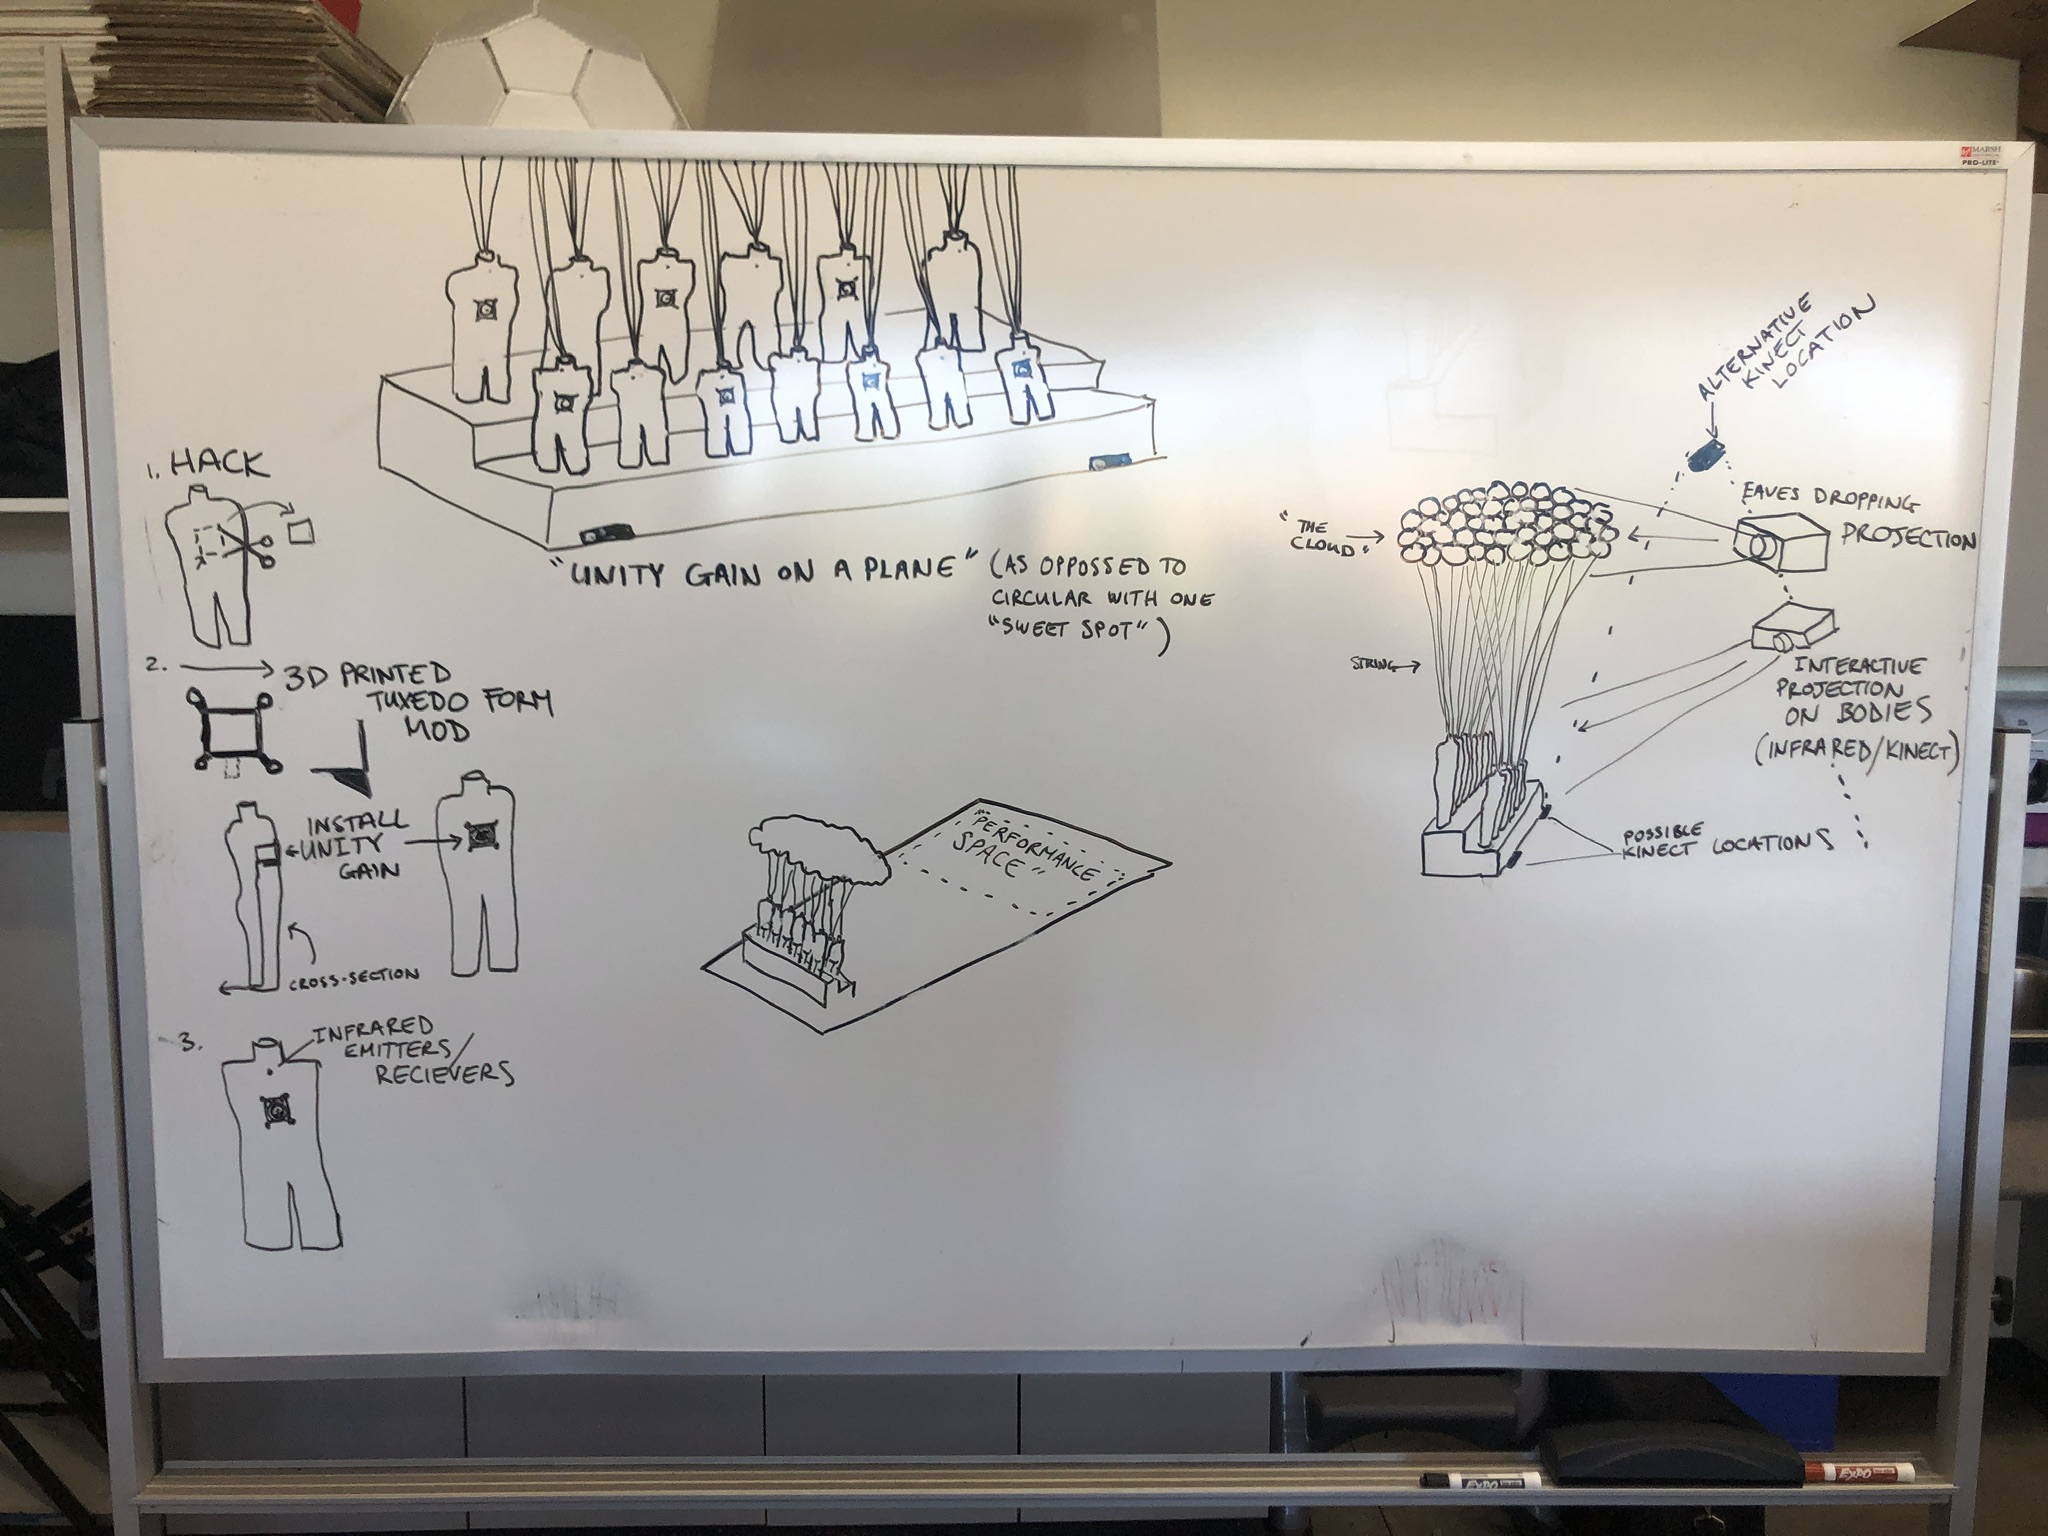 MARSH
PRO-LITE
1. HACK
2.
3D PRINTED
TUXEDO FORM
MOD
INSTALL
UNITY
GAIN
CROSS-SECTION
3.
INFRARED
EMITTERS/
RECIEVERS
"UNITY GAIN ON A PLANE" (AS OPPOSSED TO
CIRCULAR WITH ONE
"SWEET SPOT")
"PERFORMANCE
SPACE"
ALTERNATIVE
KINECT
LOCATION
"THE
CLOUD"
EAVES DROPPING
PROJECTION
STRING
INTERACTIVE
PROJECTION
ON BODIES
(INFRARED/KINECT)
POSSIBLE
KINECT LOCATIONS
EXPO
EXPO